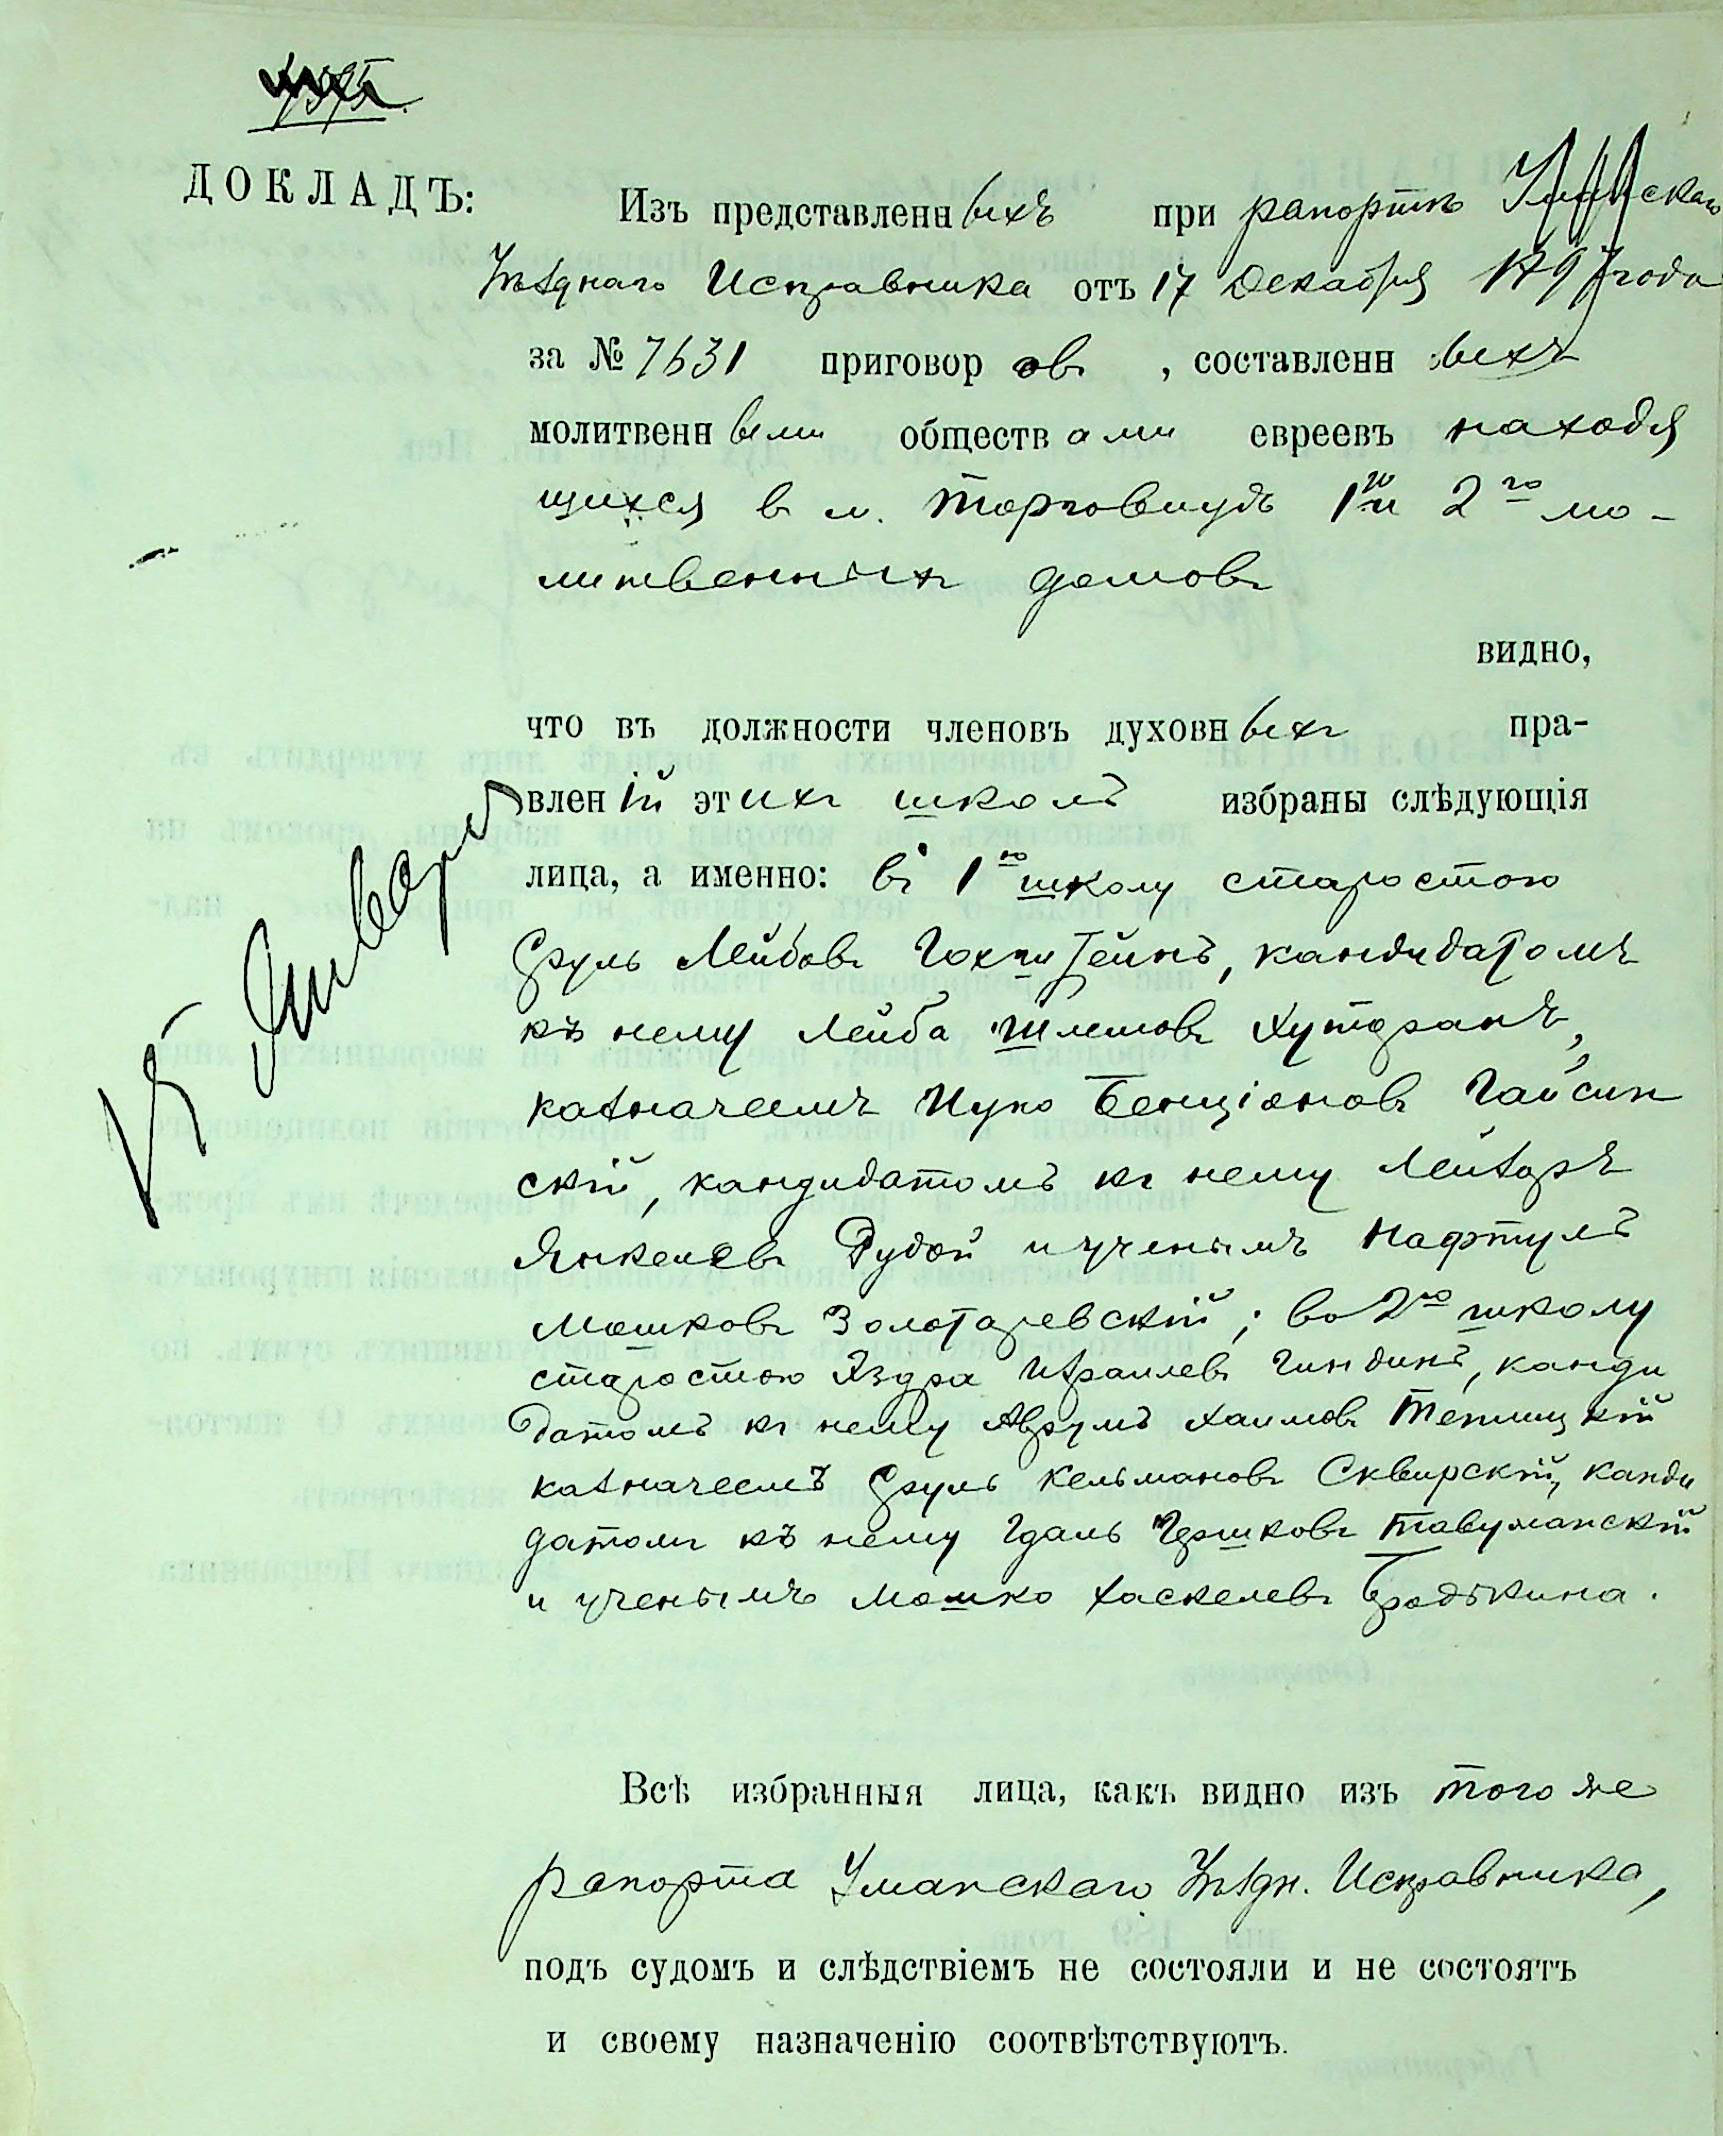 ДОКЛАДЪ:
Изъ представленныхъ при рапортѣ Уманскаго
Уѣзднаго Исправника отъ 17 Декабря 1897 года
за № 7631 приговоровъ, составленныхъ
молитвенными обществами евреевъ находя
щихся въ м. Торговицѣ 1го и 2го мо-
литвенныхъ домовъ
видно,
что въ должности членовъ духовныхъ пра-
вленій этихъ школъ избраны слѣдующія
лица, а именно: въ 1ю школу старостою
Сруль Лейбовъ Гохштейнъ, кандидатомъ
къ нему Лейба Шлемовъ Хуторанъ,
казначеемъ Ицко Бенціоновъ Гайсин
скій, кандидатомъ къ нему Лейзоръ
Янкелевъ Рудой и ученымъ Нафтулъ
Мошковъ Золотаревскій; во 2ю школу
старостою Эздра Израилевъ Гиндинъ, канди
датомъ къ нему Аврумъ Хаимовъ Теплицкій
казначеемъ Сруль Кельмановъ Сквирскій, канди
датомъ къ нему Гдаль Гершковъ Тавуманскій
и ученымъ Мошко Хаскелевъ Бродькина.
15 Января
Всѣ избранныя лица, какъ видно изъ того же
рапорта Уманскаго Уѣздн. Исправника,
подъ судомъ и слѣдствіемъ не состояли и не состоятъ
и своему назначенію соотвѣтствуютъ.